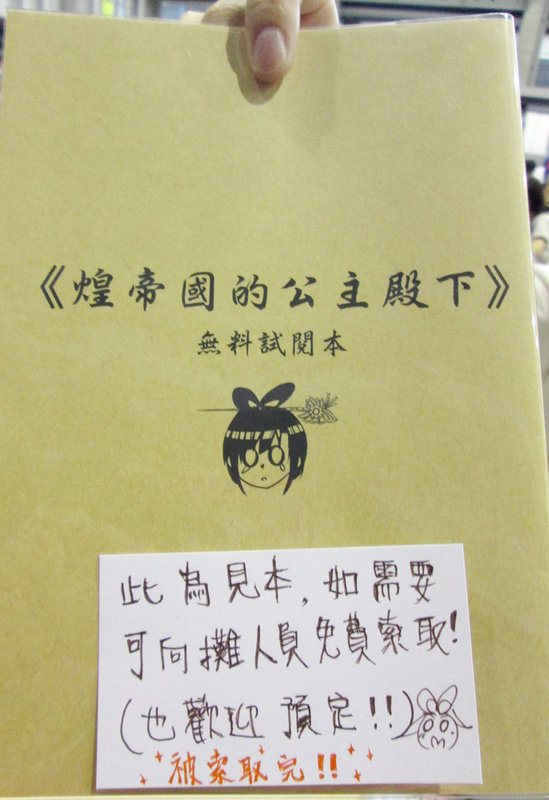 《煌帝國的公主殿下》
無料試閱本
此為見本,如需要
可向攤人員免費索取!
(也歡迎 預定!!)
被索取完!!